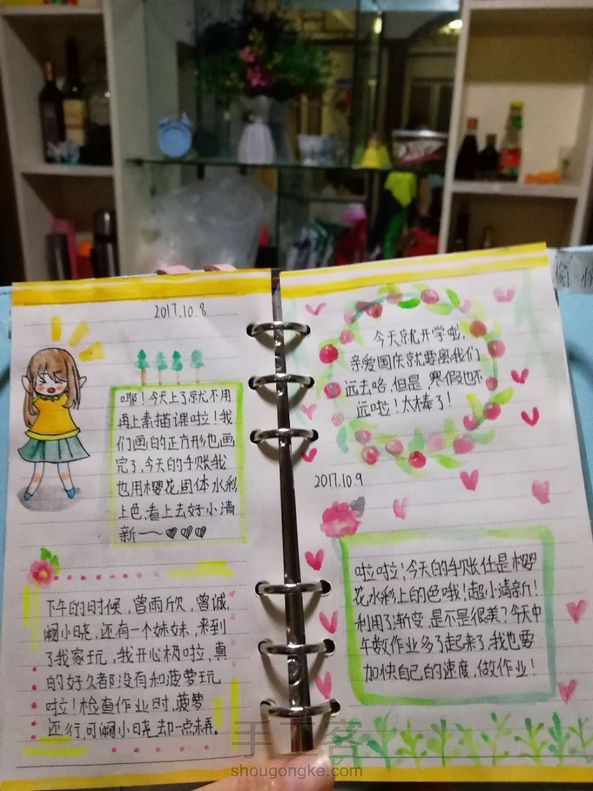 2017.10.8
今天上了就不用
再上素描课啦！我
们画的正方形也画
完了，今天的手账我
也用樱花固体水彩
上色，看上去好小清
新——
下午的时候，曾雨欣，曾诚，
小晓，还有一个妹妹，来到
了我家玩，我开心极啦，真
的好久都没有和菠萝玩
啦！检查作业时，菠萝
还行，可小晓却一点未弄。
今天就开学啦，
亲爱国庆就要离我们
远去咯，但是，寒假也不
远啦！太棒了！
2017.10.9
啦啦！今天的手账任是樱
花水彩上的色哦！超小清新！
利用了渐变，是不是很美？今天中
午数作业多了起来了，我也要
加快自己的速度，做作业！
shougongke.com